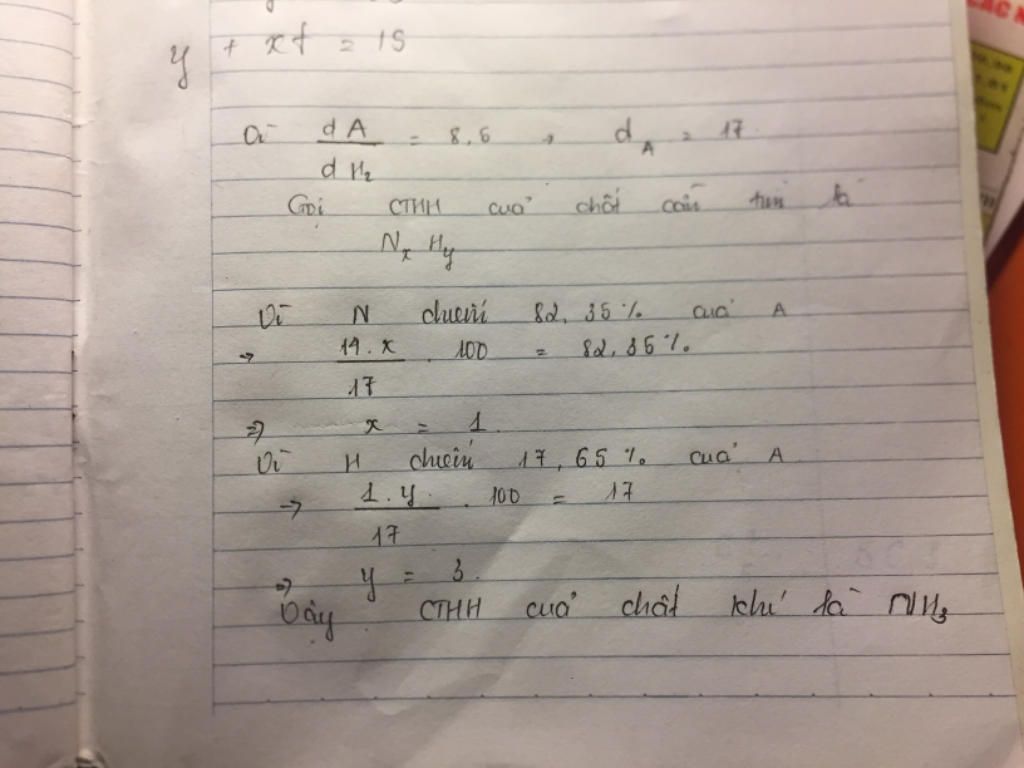 y + xt = 15
Vì dA / dH₂ = 8,5 → d_A = 17
Gọi CTHH của chất cần tìm là
NₓHᵧ
Vì N chiếm 82,35% của A
→ 14.x / 17 . 100 = 82,35%.
⇒ x = 1
Vì H chiếm 17,65% của A
→ 1.y / 17 . 100 = 17
⇒ y = 3.
Vậy CTHH của chất khí là NH₃